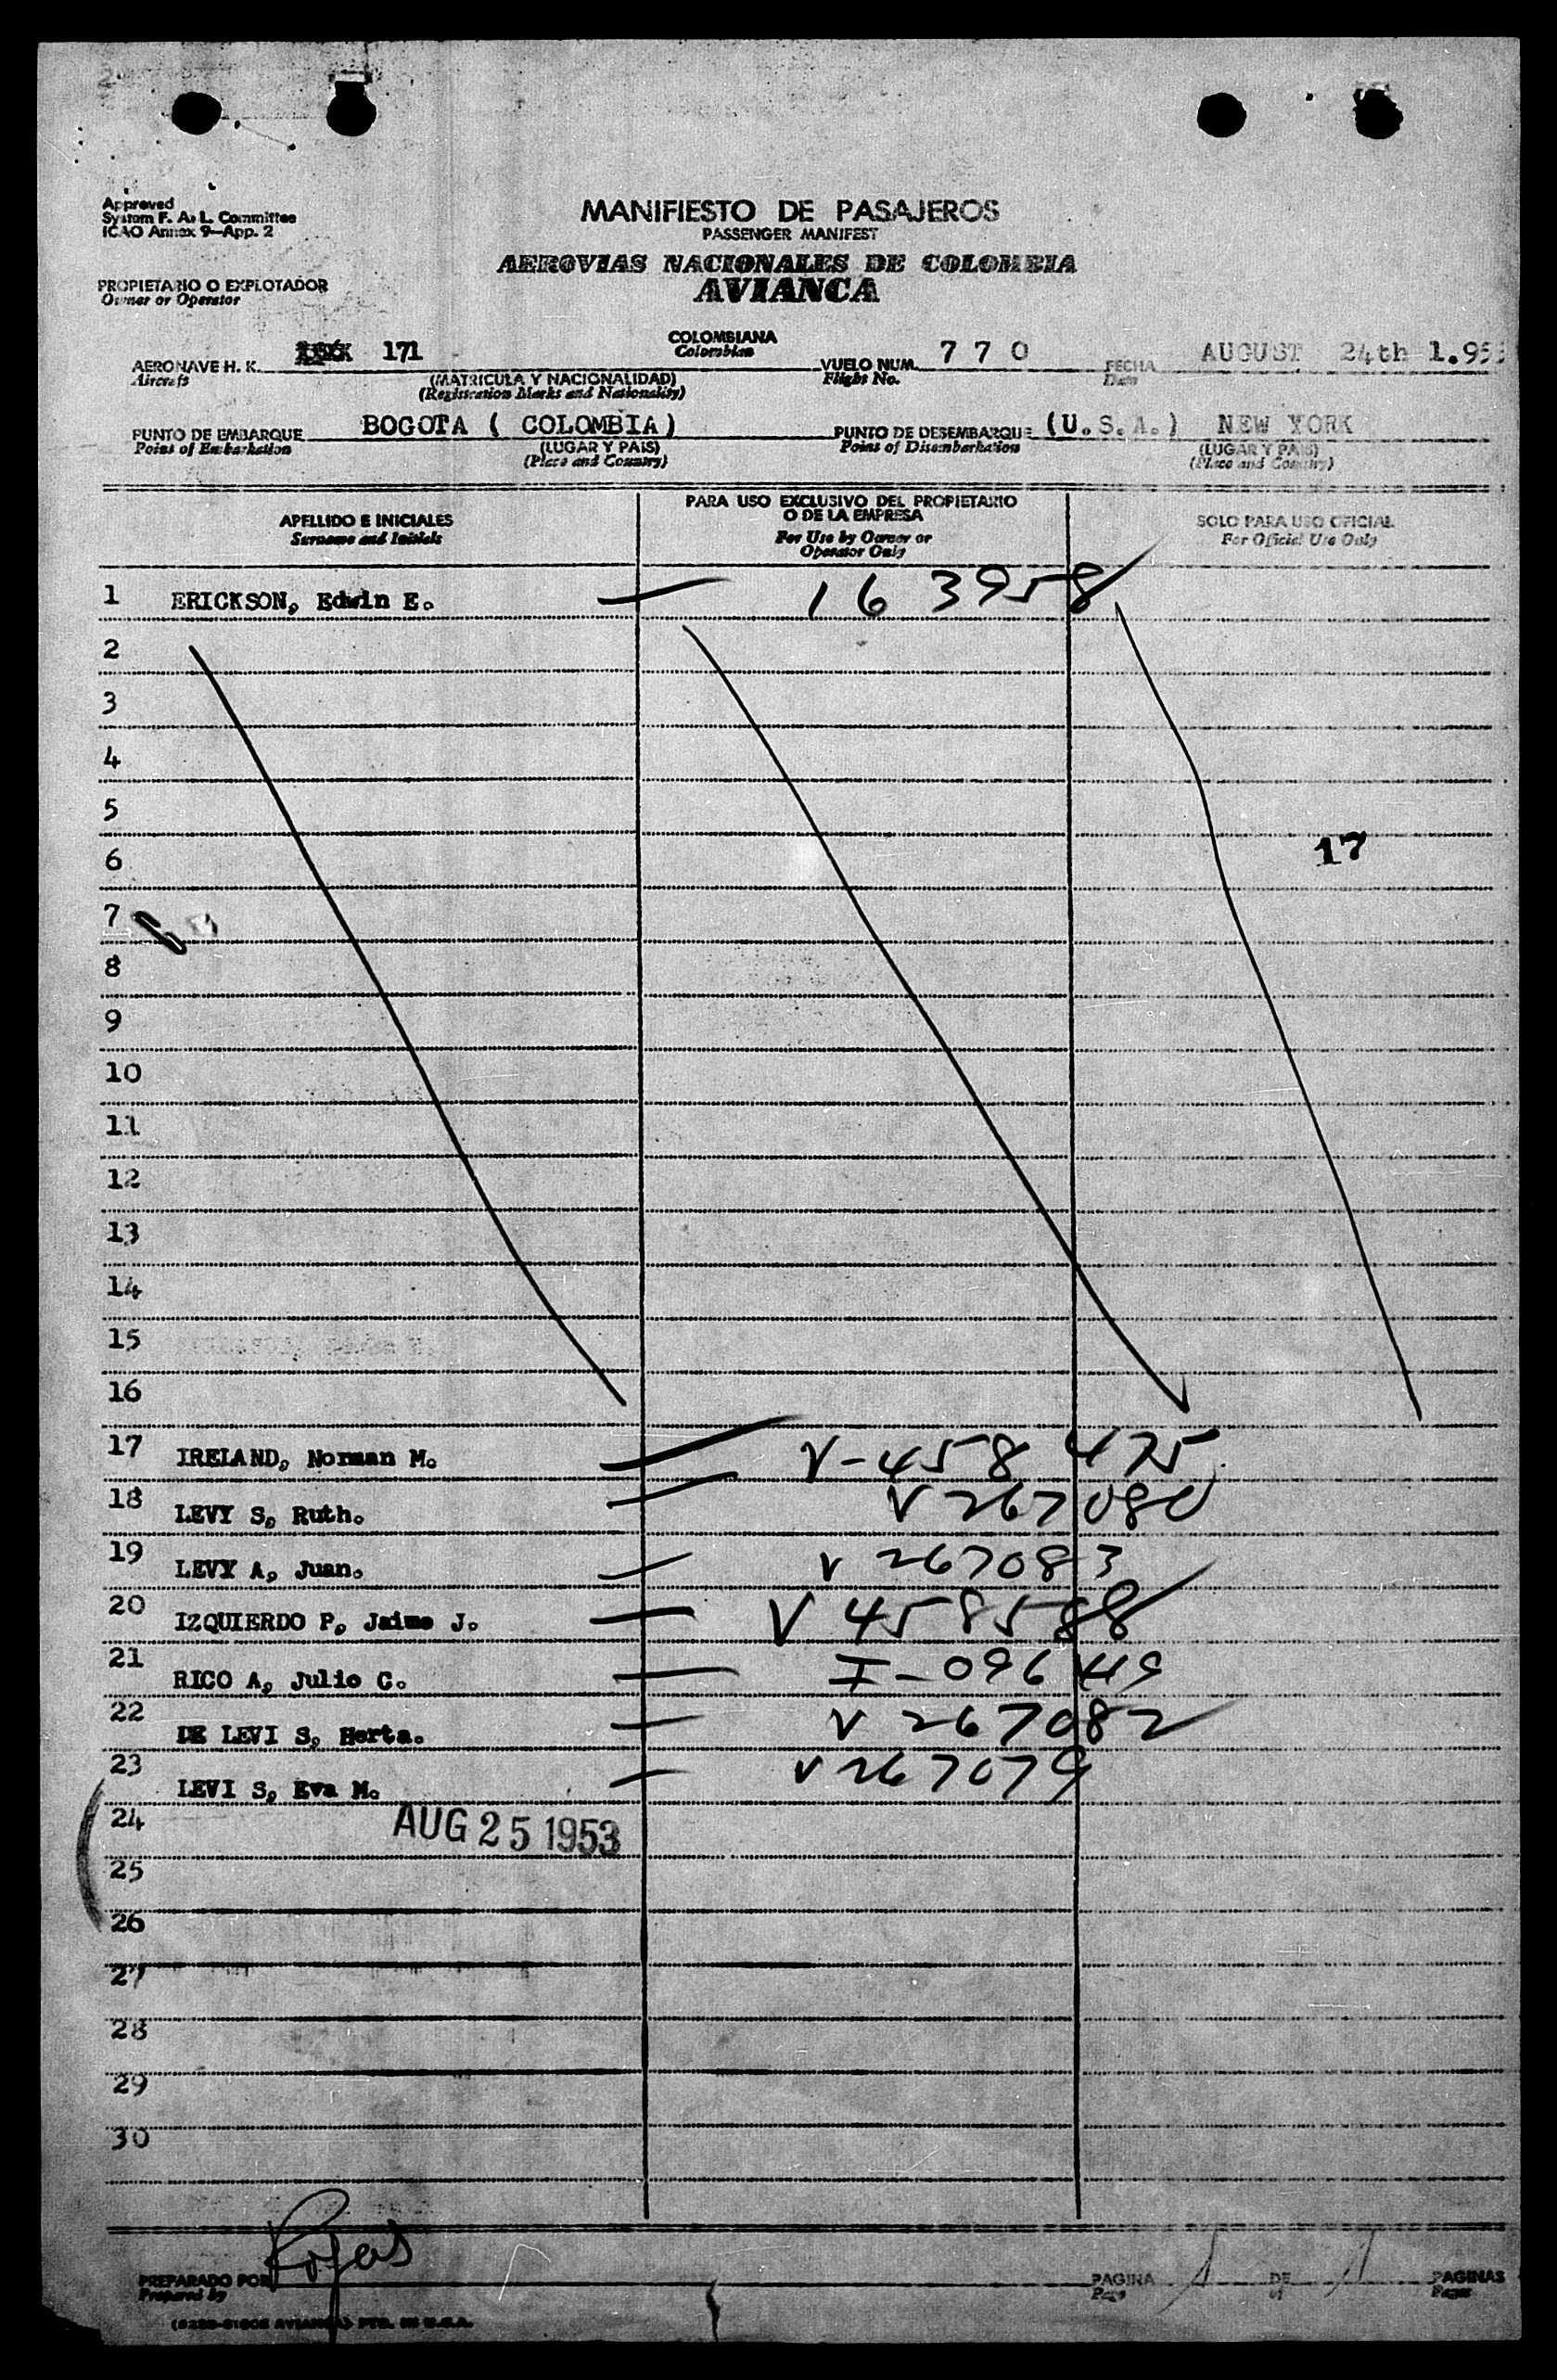 Approved
System F. A. L. Committee
ICAO Annex 9—App. 2
MANIFIESTO DE PASAJEROS
PASSENGER MANIFEST
AEROVIAS NACIONALES DE COLOMBIA
AVIANCA
PROPIETARIO O EXPLOTADOR
Owner or Operator
AERONAVE H. K. 171
Aircraft
COLOMBIANA
Colombian
(MATRICULA Y NACIONALIDAD)
(Registration Marks and Nationality)
VUELO NUM. 7 7 0
Flight No.
FECHA AUGUST 24th 1.953
Date
PUNTO DE EMBARQUE BOGOTA ( COLOMBIA )
Point of Embarkation
(LUGAR Y PAIS)
(Place and Country)
PUNTO DE DESEMBARQUE (U.S.A.) NEW YORK
Point of Disembarkation
(LUGAR Y PAIS)
(Place and Country)
APELLIDO E INICIALES
Surname and Initials
PARA USO EXCLUSIVO DEL PROPIETARIO
O DE LA EMPRESA
For Use by Owner or
Operator Only
SOLO PARA USO OFICIAL
For Official Use Only
1 ERICKSON, Edwin E. — 16 3958
2
3
4
5
6 17
7
8
9
10
11
12
13
14
15
16
17 IRELAND, Norman M. — V-458 475
18 LEVY S, Ruth. — V 267080
19 LEVY A, Juan. — V 267083
20 IZQUIERDO P, Jaime J. — V 458588
21 RICO A, Julio C. — I-096449
22 DE LEVI S, Herta. — V 267082
23 LEVI S, Eva M. — V 267079
24 AUG 25 1953
25
26
27
28
29
30
PREPARADO POR Rojas
Prepared by
PAGINA 1 DE 1 PAGINAS
Page of Pages